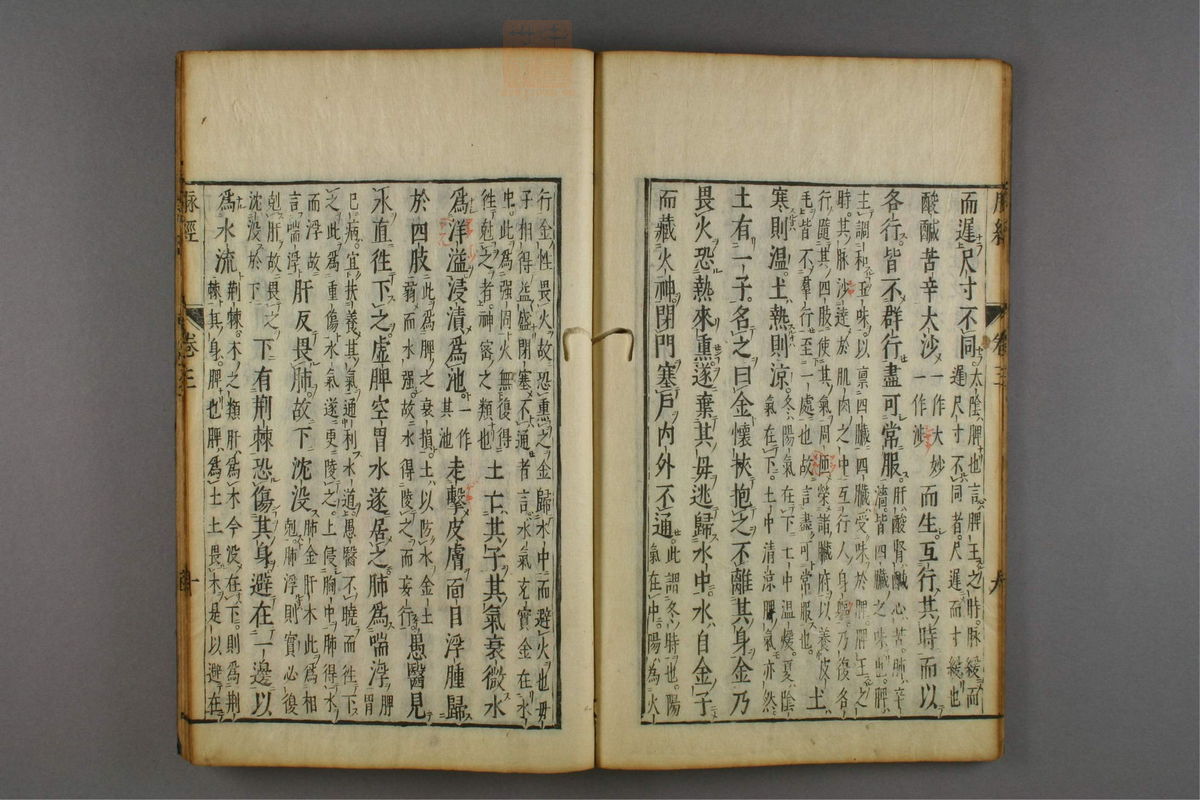 脉經 卷三 九
而遲尺寸不同太陰脾也言脾王之時脉緩而
遲尺寸不同者尺遲而寸緩也
酸鹹苦辛太沙一作大妙
一作涉而生互行其時而以
各行皆不群行盡可常服肝酸腎鹹心苦肺辛
濇皆四臟之味也脾
主調和五味以禀四臟四臟受味於脾脾王之
時其脉沙達於肌肉之中互行人身軀乃復各
行隨其四肢使其氣周匝榮諸臟府以養皮
毛皆不羣行至一處也故言盡可常服也土
寒則温土熱則涼冬陽氣在下土中温煖夏陰
氣在下土中清涼脾氣亦然
土有一子名之曰金懷挾抱之不離其身金乃
畏火恐熱來熏遂棄其母逃歸水中水自金子
而藏火神閉門塞戸内外不通此謂冬時也陽
氣在中陽為火
行金性畏火故恐熏之金歸水中而避火也母
子相得益盛閉塞不通者言水氣充實金在水
中此為强固火無復得
徃尅之者神密之類也土亡其子其氣衰微水
為洋溢浸漬為池一作
其池走擊皮膚面目浮腫歸
於四肢此為脾之衰損土以防水金土
弱而水强故水得陵之而妄行愚醫見
水直徃下之虚脾空胃水遂居之肺為喘浮脾
胃
已病宜扶養其氣通利水道愚醫不曉而徃下
之此為重傷水氣遂更陵之上侵胸中肺得水
而浮故
言喘浮肝反畏肺故下沈没肺金肝木此為相
尅肺浮則實必復
尅肝故畏之
沈没於下下有荆棘恐傷其身避在一邊以
為水流荆棘木之類肝為木今没在下則為荆
棘其身脾也脾為土土畏木是以避在
脉經 卷三